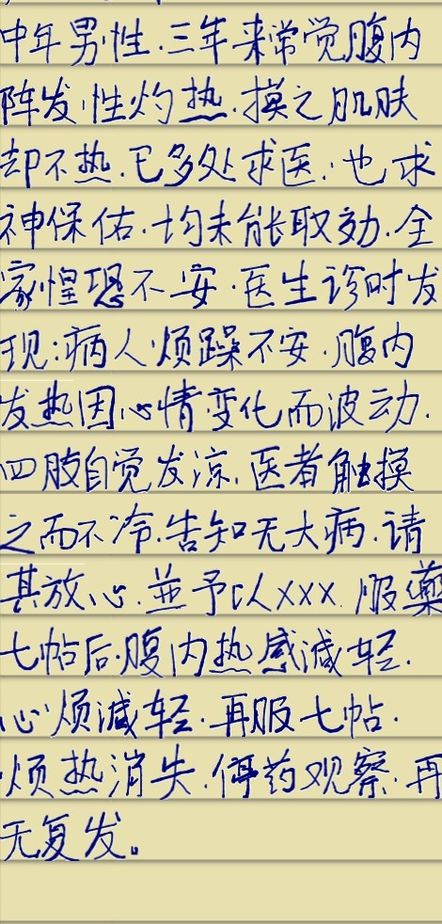 中年男性.三年来常觉腹内
阵发性灼热.摸之肌肤
却不热.已多处求医.也求
神保佑.均未能取効.全
家惶恐不安.医生诊时发
现:病人烦躁不安.腹内
发热因心情变化而波动.
四肢自觉发凉.医者触摸
之而不冷.告知无大病.请
其放心.並予以xxx.服藥
七帖后.腹内热感減轻.
心烦減轻.再服七帖.
烦热消失.停药观察.再
无复发。